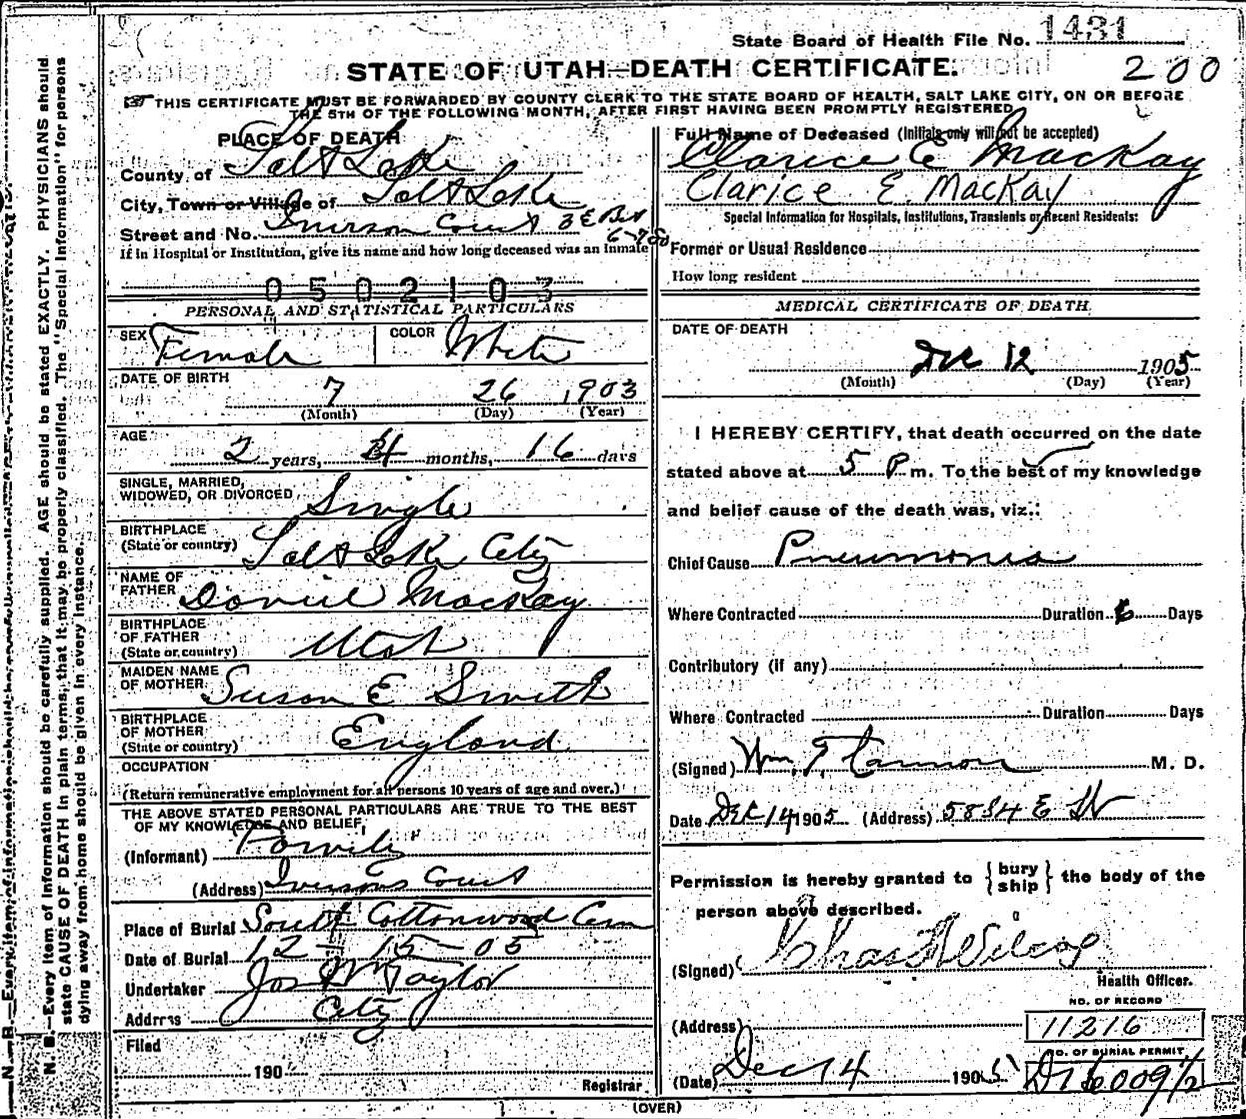 State Board of Health File No. 1431
200
STATE OF UTAH—DEATH CERTIFICATE.
THIS CERTIFICATE MUST BE FORWARDED BY COUNTY CLERK TO THE STATE BOARD OF HEALTH, SALT LAKE CITY, ON OR BEFORE
THE 5TH OF THE FOLLOWING MONTH, AFTER FIRST HAVING BEEN PROMPTLY REGISTERED.
PLACE OF DEATH
County of Salt Lake
City, Town or Village of Salt Lake
Street and No. Iverson Court 3 E Bet
6-7 So
If in Hospital or Institution, give its name and how long deceased was an Inmate
0502103
PERSONAL AND STATISTICAL PARTICULARS
SEX Female COLOR White
DATE OF BIRTH
7 26 1903
(Month) (Day) (Year)
AGE
2 years, 4 months, 16 days
SINGLE, MARRIED,
WIDOWED, OR DIVORCED Single
BIRTHPLACE
(State or country) Salt Lake City
NAME OF
FATHER Daniel MacKay
BIRTHPLACE
OF FATHER
(State or country) Utah
MAIDEN NAME
OF MOTHER Susan E Smith
BIRTHPLACE
OF MOTHER
(State or country) England
OCCUPATION
(Return remunerative employment for all persons 10 years of age and over.)
THE ABOVE STATED PERSONAL PARTICULARS ARE TRUE TO THE BEST
OF MY KNOWLEDGE AND BELIEF,
(Informant) Family
(Address) Iversons Court
Place of Burial South Cottonwood Cem
Date of Burial 12-15-05
Undertaker Jos Wm Taylor
Address City
Filed
190
Registrar
Full Name of Deceased (Initials only will not be accepted)
Clarice E MacKay
Clarice E. MacKay
Special Information for Hospitals, Institutions, Transients or Recent Residents:
Former or Usual Residence
How long resident
MEDICAL CERTIFICATE OF DEATH.
DATE OF DEATH
Dec 12 1905
(Month) (Day) (Year)
I HEREBY CERTIFY, that death occurred on the date
stated above at 5 P m. To the best of my knowledge
and belief cause of the death was, viz.:
Chief Cause Pneumonia
Where Contracted Duration 6 Days
Contributory (if any)
Where Contracted Duration Days
(Signed) Wm. T. Cannon M. D.
Date Dec 14 1905 (Address)
Permission is hereby granted to { bury ship } the body of the
person above described.
(Signed) Chas Wilcox
Health Officer.
NO. OF RECORD
(Address) 11216
NO. OF BURIAL PERMIT
(Date) Dec 14 1905
(OVER)
N. B.—Every item of information should be carefully supplied. AGE should be stated EXACTLY. PHYSICIANS should
state CAUSE OF DEATH in plain terms, that it may be properly classified. The "Special Information" for persons
dying away from home should be given in every instance.